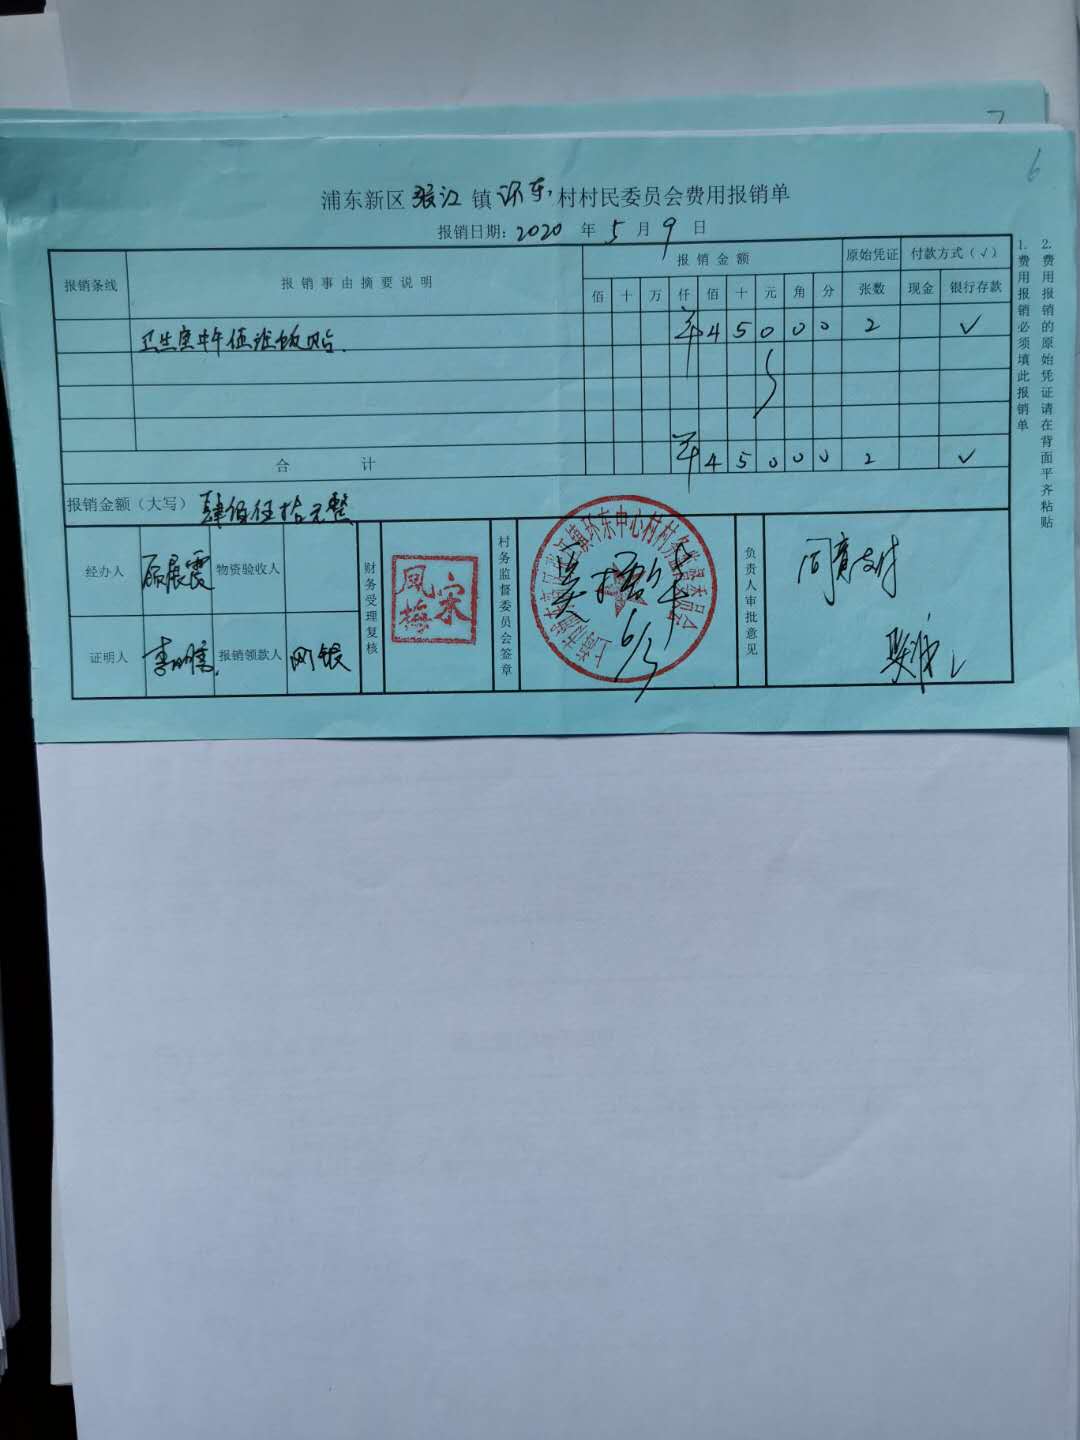 7
6
浦东新区 张江 镇 环东 村村民委员会费用报销单
报销日期: 2020 年 5 月 9 日
报销条线 报销事由摘要说明 报销金额 原始凭证 付款方式(√)
佰 十 万 仟 佰 十 元 角 分 张数 现金 银行存款
卫生室中午值班饭贴. ¥ 4 5 0 0 0 2 √
合计 ¥ 4 5 0 0 0 2 √
报销金额(大写) 肆佰伍拾元整
经办人 物资验收人
证明人 报销领款人 网银
财务受理复核
宋凤梅
村务监督委员会签章
镇环东中心村村务监督委员会
6/5
负责人审批意见
同意支付
1.费用报销必须填此报销单
2.费用报销的原始凭证请在背面平齐粘贴